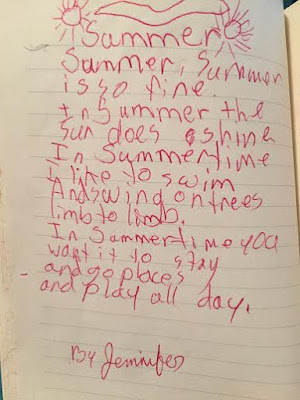 Summer
Summer, Summer
is so fine.
In Summer the
Sun does shine
In Summertime
I like to swim
And swing on trees
limb to limb.
In Summertime you
want it to stay
and go places
and play all day.
By Jennifer